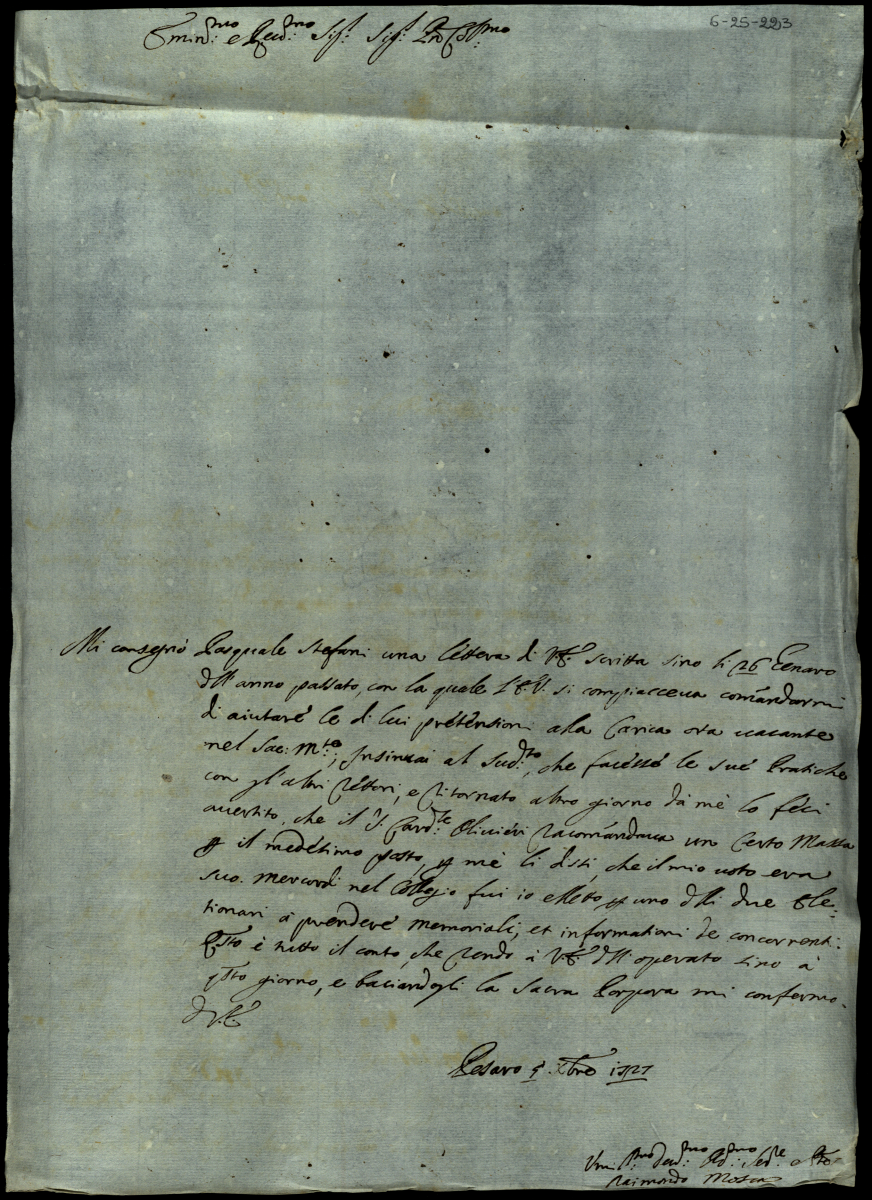 6-25-223
Emin:mo e Rev:mo Sig: Sig: Pron Col:mo
Mi consegnò Pasquale Stefani una lettera di V.E. scritta sino li 26 Genaro
dell anno passato, con la quale l'E.V. si compiaceva comandarmi
di aiutare le di lui pretensioni alla Carica ora vacante
nel Sac: M.te, insinuai al Sud.to, che facesse le sue Pratiche
con gl'altri Rettori, e ritornato altro giorno da me lo feci
avertito, che il S. Card.le Olivieri racomandava un Certo Massa
p il medesimo posto, p me li dissi, che il mio voto era
suo. Mercordì nel Collegio fui io eletto p uno dlli due Ele-
tionari à prendere memoriali, et informationi de concorrenti.
Qsto è tutto il conto, che rendo à V.E. dll operato sino à
qsto giorno, e baciandogli la Sacra Porpora mi confermo.
D V.E.
Pesaro 5 Xbre 1727
Um:mo Dev:mo Obl:mo Ser.re
Raimondo Mosca